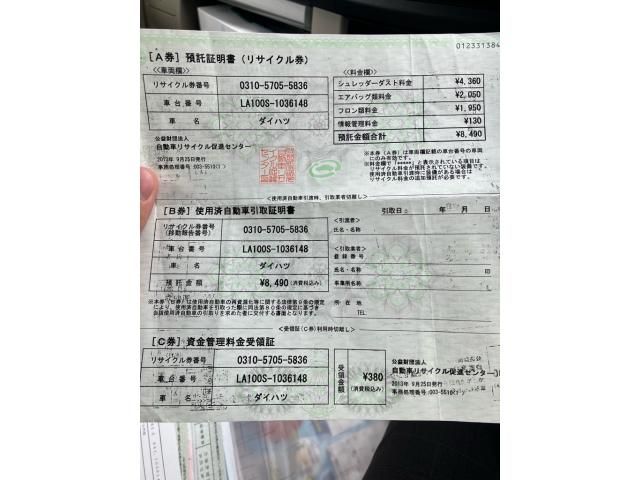 012331384
[A券] 預託証明書 (リサイクル券)
<<車両欄>>
リサイクル券番号 0310-5705-5836
車台番号 LA100S-1036148
車名 ダイハツ
公益財団法人
自動車リサイクル促進センター
2013年 9月25日発行
事務処理番号:003-5510( )
<<料金欄>>
シュレッダーダスト料金 ¥4,360
エアバッグ類料金 ¥2,050
フロン類料金 ¥1,950
情報管理料金 ¥130
預託金額合計 ¥8,490
※本券(A券)は車両欄記載の車台番号の車両
にのみ有効です。
<使用済自動車引渡時、引取業者切離し>
[B券] 使用済自動車引取証明書
引取日:
リサイクル券番号
(移動報告番号) 0310-5705-5836
車台番号 LA100S-1036148
車名 ダイハツ
預託金額 ¥8,490(消費税込み)
<引渡者>
氏名・名称
<引取業者>
登録番号
氏名・名称 印
事業所名
所在地
TEL
<受領証(C券)利用時切離し>
[C券] 資金管理料金受領証
リサイクル券番号 0310-5705-5836
車台番号 LA100S-1036148
車名 ダイハツ
受領金額 ¥380
(消費税込み)
公益財団法人
自動車リサイクル促進センター
2013年 9月25日発行
事務処理番号:003-5510( )